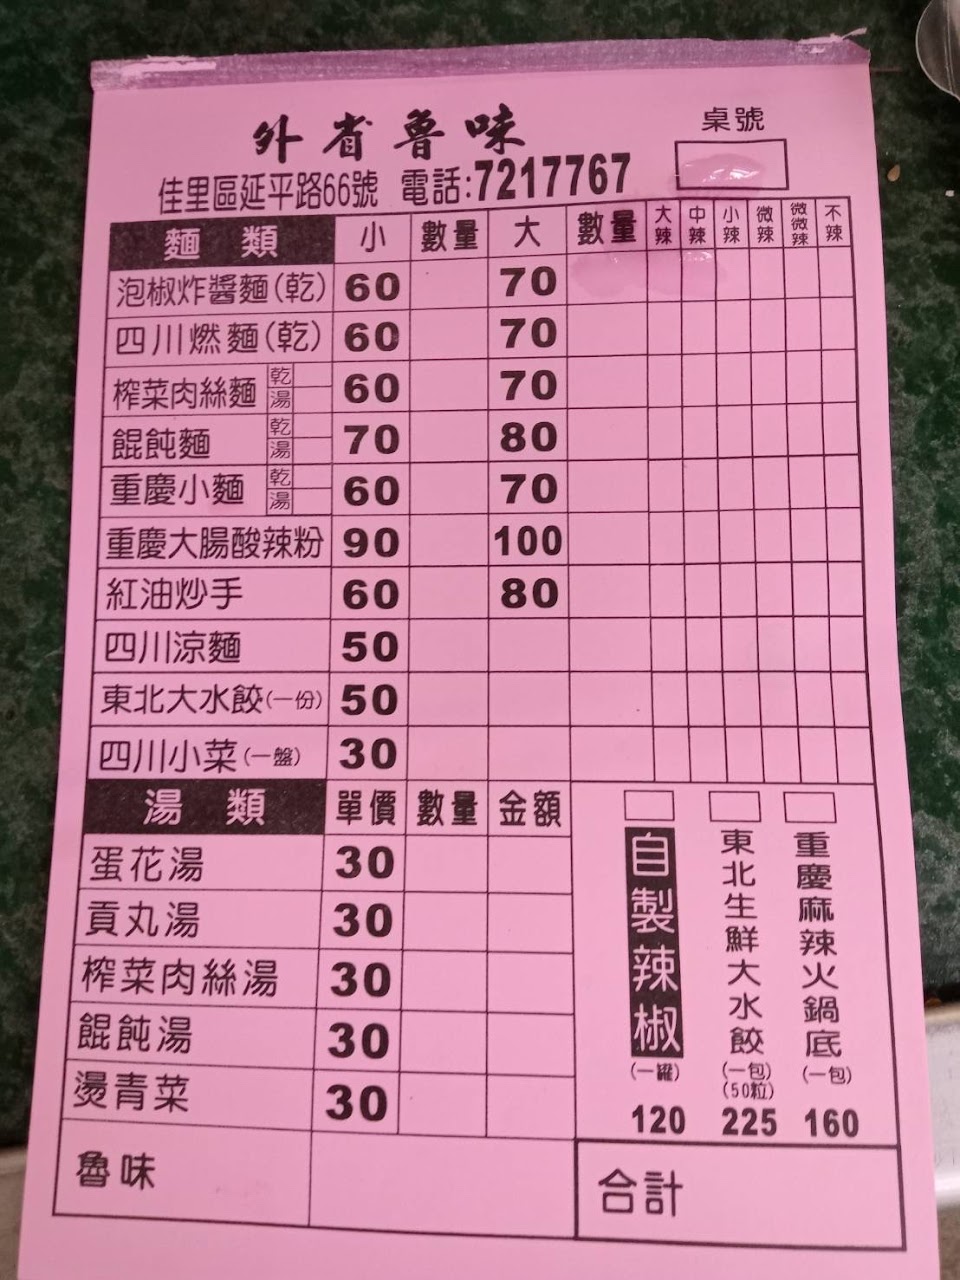 外省魯味
桌號
佳里區延平路66號 電話:7217767
麵類 小 數量 大 數量 大辣 中辣 小辣 微辣 微微辣 不辣
泡椒炸醬麵(乾) 60 70
四川燃麵(乾) 60 70
榨菜肉絲麵 乾 湯 60 70
餛飩麵 乾 湯 70 80
重慶小麵 乾 湯 60 70
重慶大腸酸辣粉 90 100
紅油炒手 60 80
四川涼麵 50
東北大水餃(一份) 50
四川小菜(一盤) 30
湯類 單價 數量 金額
蛋花湯 30
貢丸湯 30
榨菜肉絲湯 30
餛飩湯 30
燙青菜 30
魯味
自製辣椒(一罐) 120
東北生鮮大水餃(一包)(50粒) 225
重慶麻辣火鍋底(一包) 160
合計